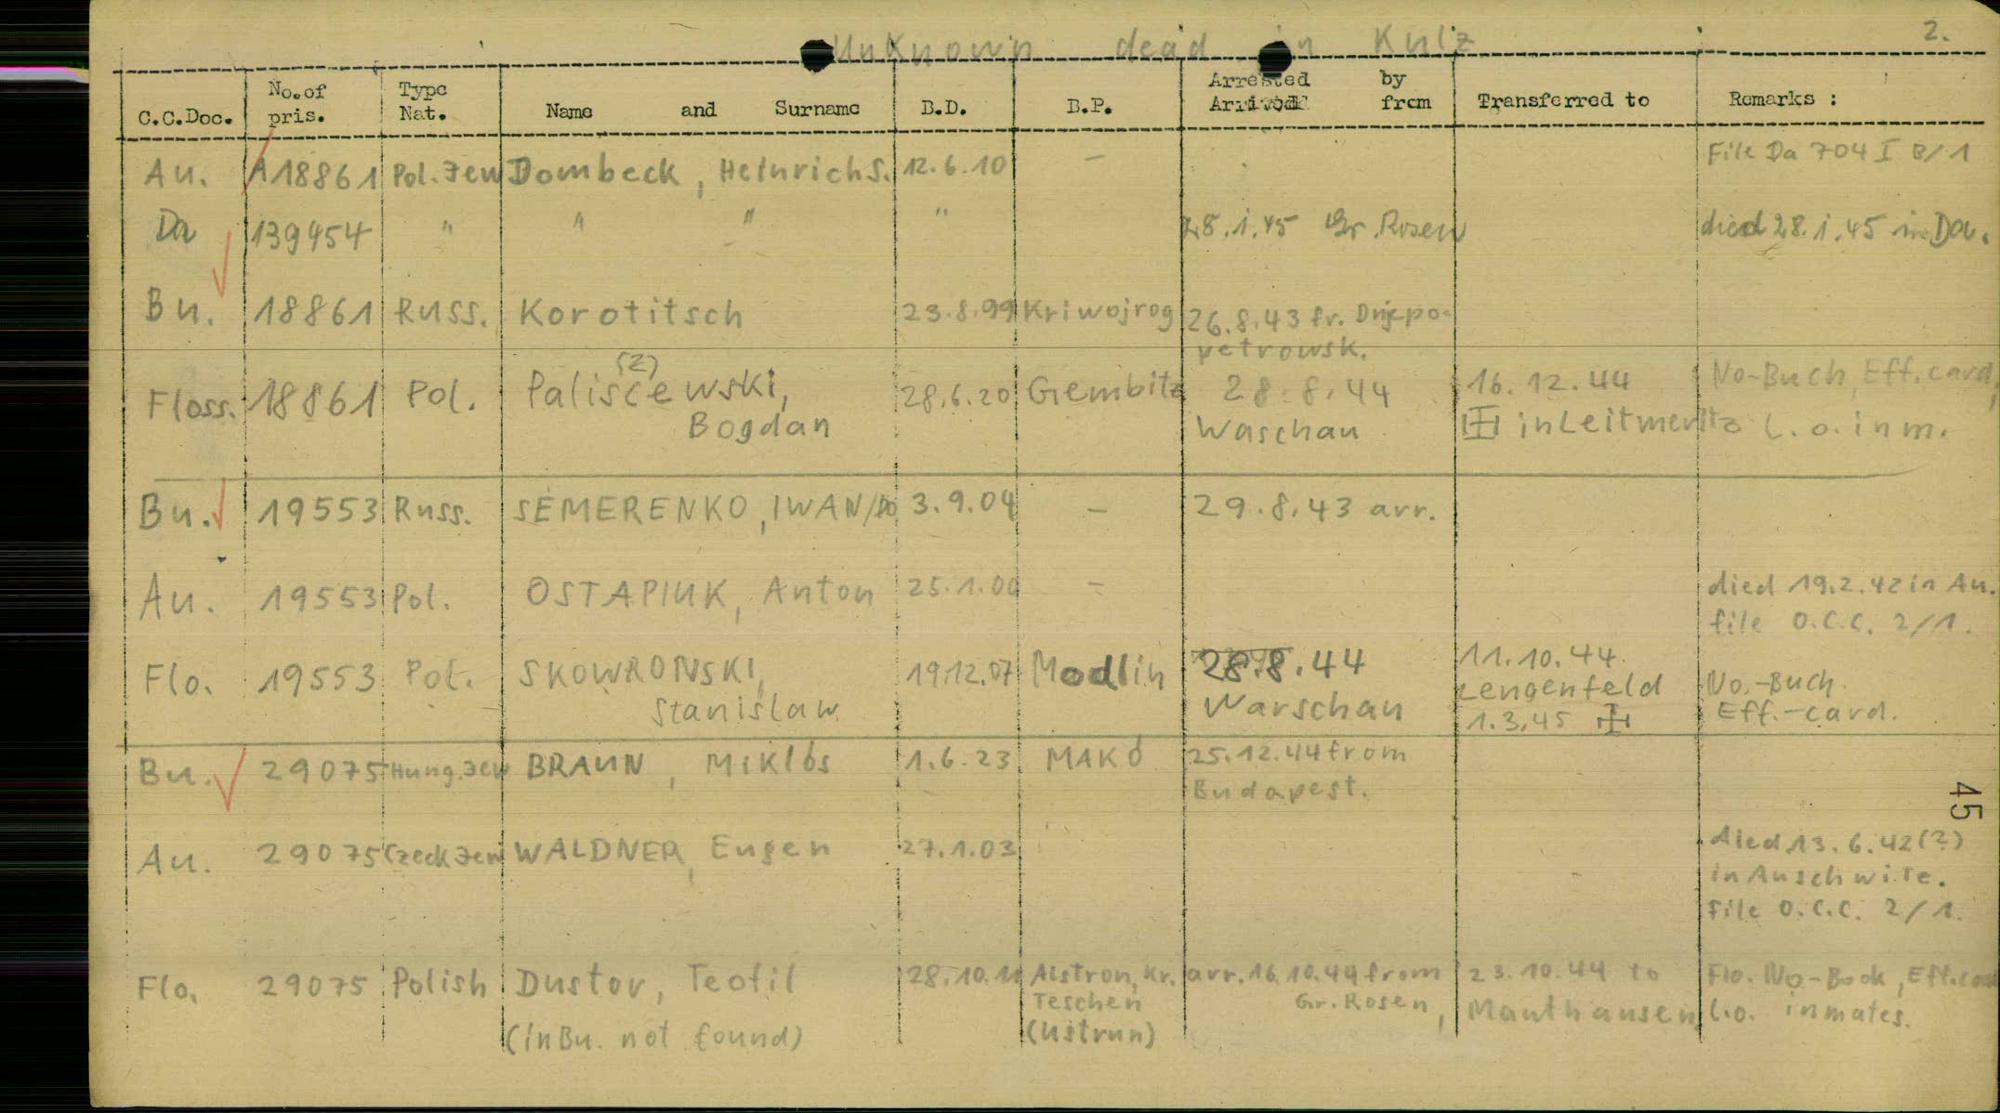 Unknown dead in Kulz 2.
C.C.Doc. No.of pris. Type Nat. Name and Surname B.D. B.P. Arrested by Arrived from Transferred to Remarks :
Au. A18861 Pol. Jew Dombeck, Heinrich S. 12.6.10 - File Da 704 I B/1
Da 139454 " " " " 28.1.45 Gr. Rosen died 28.1.45 in Da.
Bu. 18861 Russ. Korotitsch 23.8.99 Kriwojrog 26.8.43 fr. Dnjepo-
petrowsk.
(z)
Floss. 18861 Pol. Paliscewski, 28.6.20 Gembitz 28.8.44 16.12.44 No-Buch, Eff. card,
Bogdan Waschau in Leitmeritz l.o. inm.
Bu. 19553 Russ. SEMERENKO, IWAN/ 3.9.04 - 29.8.43 arr.
Au. 19553 Pol. OSTAPIUK, Anton 25.1.00 - died 19.2.42 in Au.
file O.C.C. 2/1.
Flo. 19553 Pol. SKOWRONSKI, 19.12.07 Modlin 28.8.44 11.10.44.
Stanislaw Warschau Lengenfeld No.-Buch.
1.3.45 Eff.-card.
Bu. 29075 Hung. Jew BRAUN, Miklós 1.6.23 MAKÓ 25.12.44 from
Budapest.
45
Au. 29075 Czeck Jew WALDNER, Eugen 27.1.03 died 13.6.42(?)
in Auschwitz.
File O.C.C. 2/1.
Flo. 29075 Polish Dustor, Teofil 28.10.11 Alstron, Kr. arr. 16.10.44 from 23.10.44 to Flo. No-Book, Eff. card
Teschen Gr. Rosen, Mauthausen l.o. inmates.
(in Bu. not found) (Ustrun)